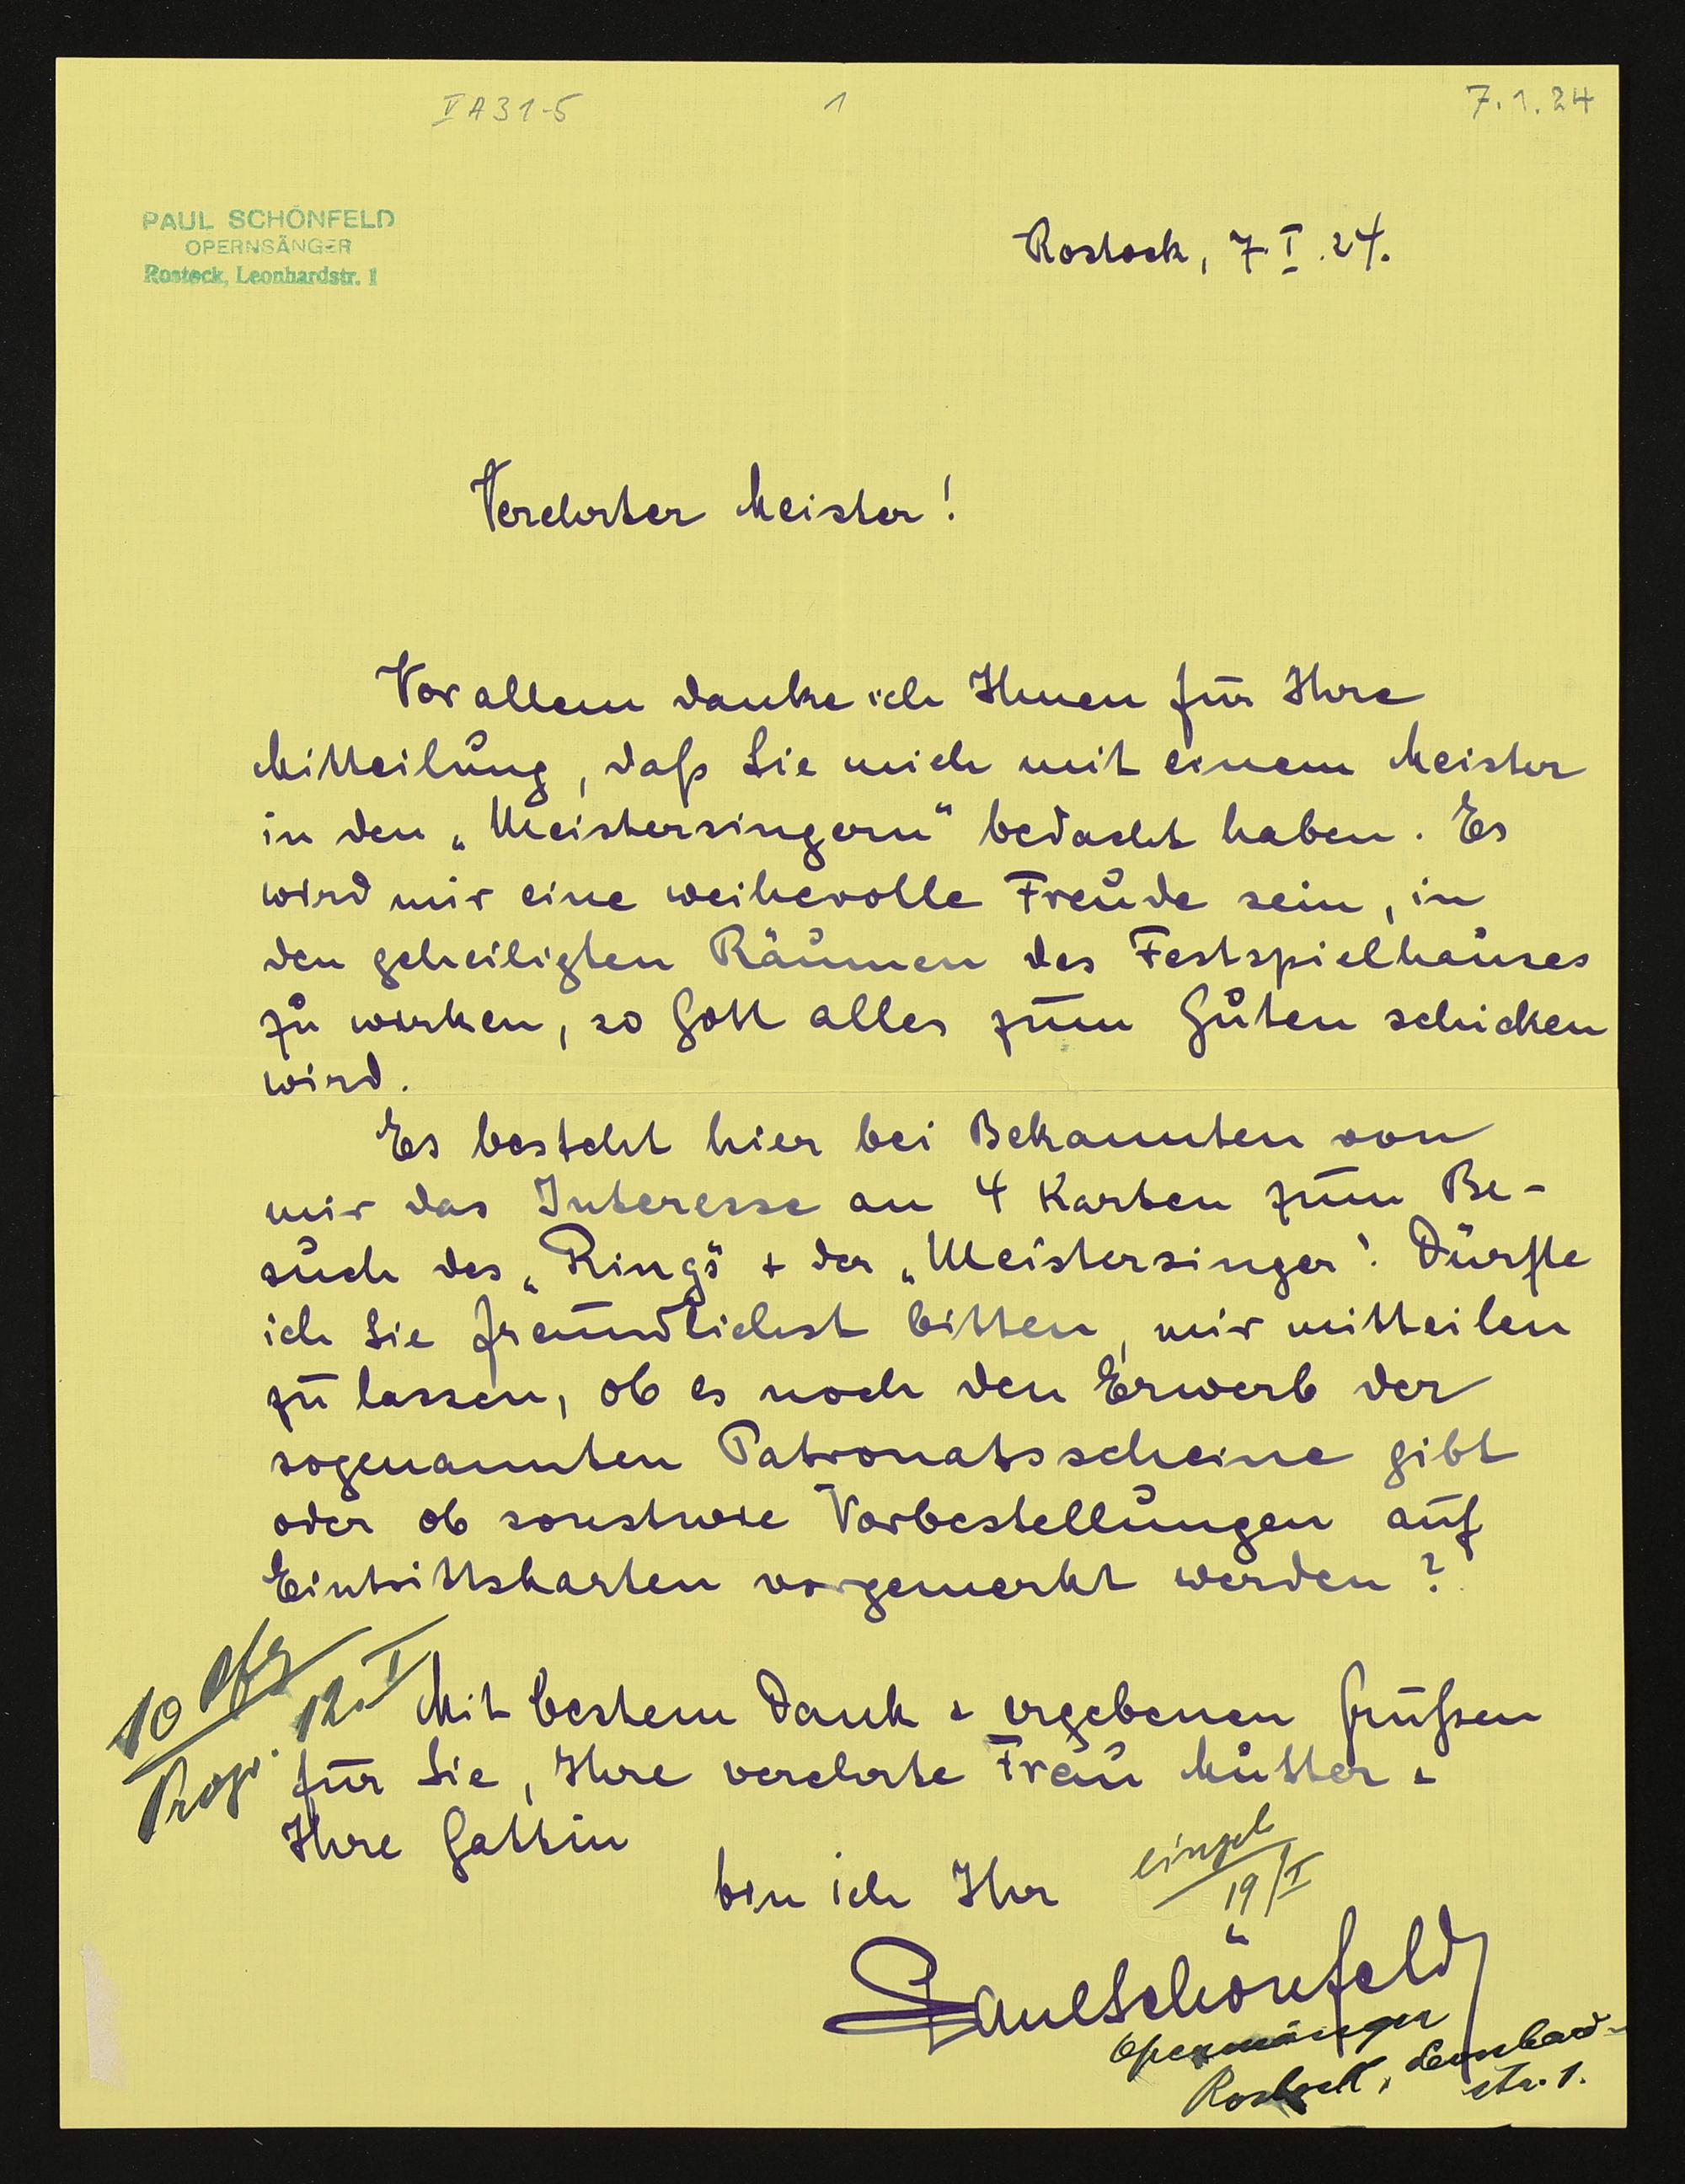 V A 31-5 1 7.1.24
PAUL SCHÖNFELD
OPERNSÄNGER
Rostock, Leonhardstr. 1
Rostock, 7.I.24.
Verehrter Meister!
Vor allem danke ich Ihnen für Ihre
Mitteilung, daß Sie mich mit einem Meister
in den „Meistersingern“ bedacht haben. Es
wird mir eine weihevolle Freude sein, in
den geheiligten Räumen des Festspielhauses
zu wirken, so Gott alles zum Guten schicken
wird.
Es besteht hier bei Bekannten von
mir das Interesse an 4 Karten zum Be-
such des „Rings“ + der „Meistersinger“. Dürfte
ich Sie freundlichst bitten, mir mitteilen
zu lassen, ob es noch den Erwerb der
sogenannten Patronatsscheine gibt
oder ob sonstwie Vorbestellungen auf
Eintrittskarten vorgemerkt werden?
10 Pfg
12.I
Prosp.
Mit bestem Dank + ergebenen Grüßen
für Sie, Ihre verehrte Frau Mutter +
Ihre Gattin
bin ich Ihr
eingel
19/I
Paul Schönfeld
Opernsänger
Rostock, Leonhard-
str. 1.